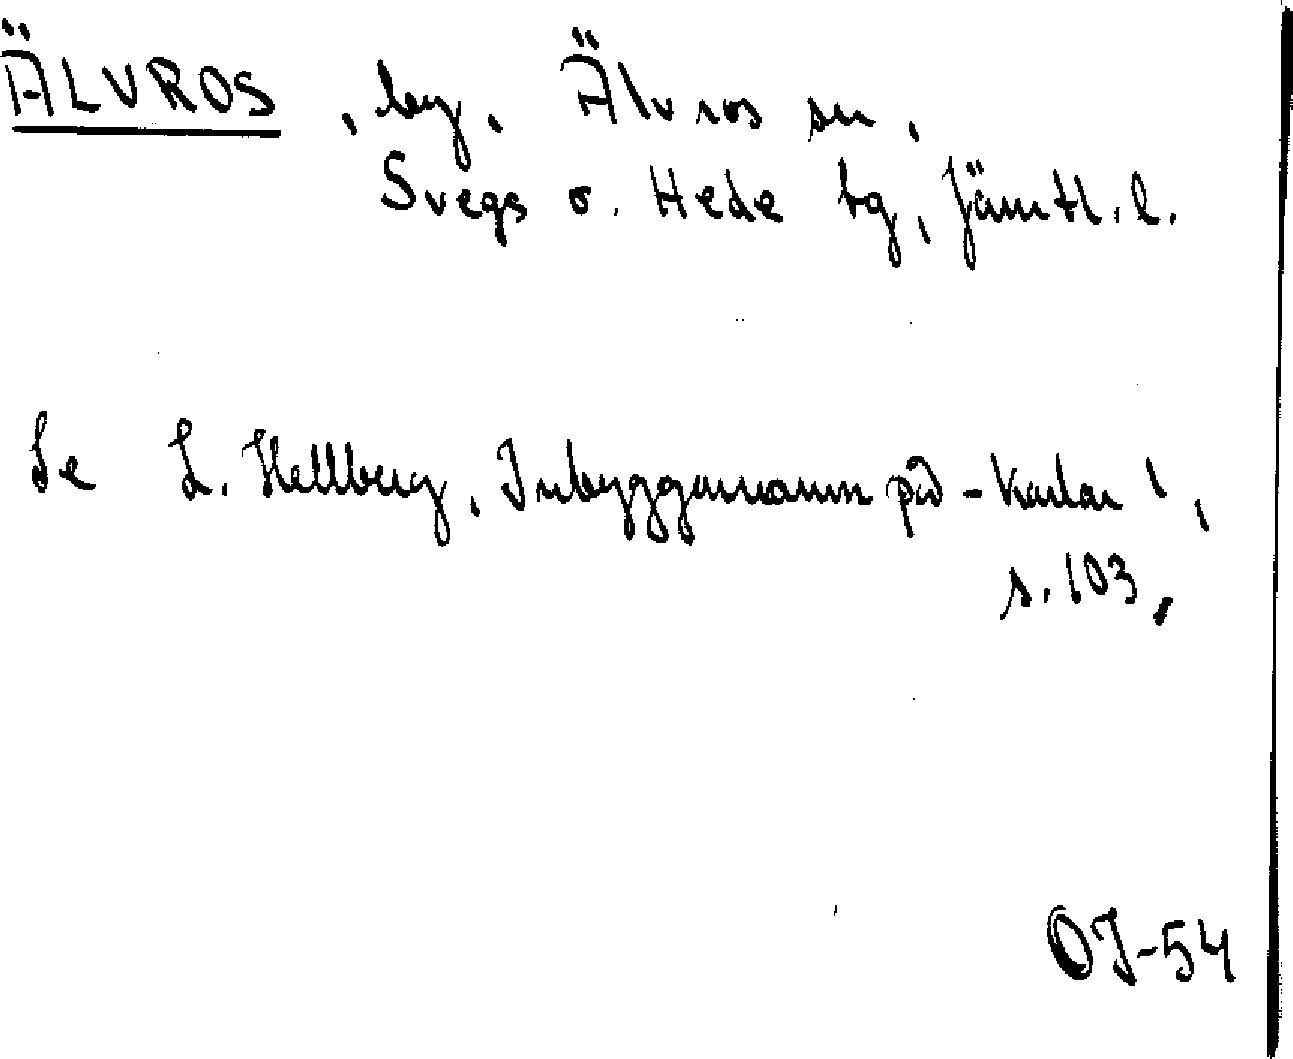 ÄLVROS, by, Älvros sn,
Svegs o. Hede tg, Jämtl. l.
Se L. Hellberg, Inbyggarnamn på -karlar 1,
s. 103,
OJ-54